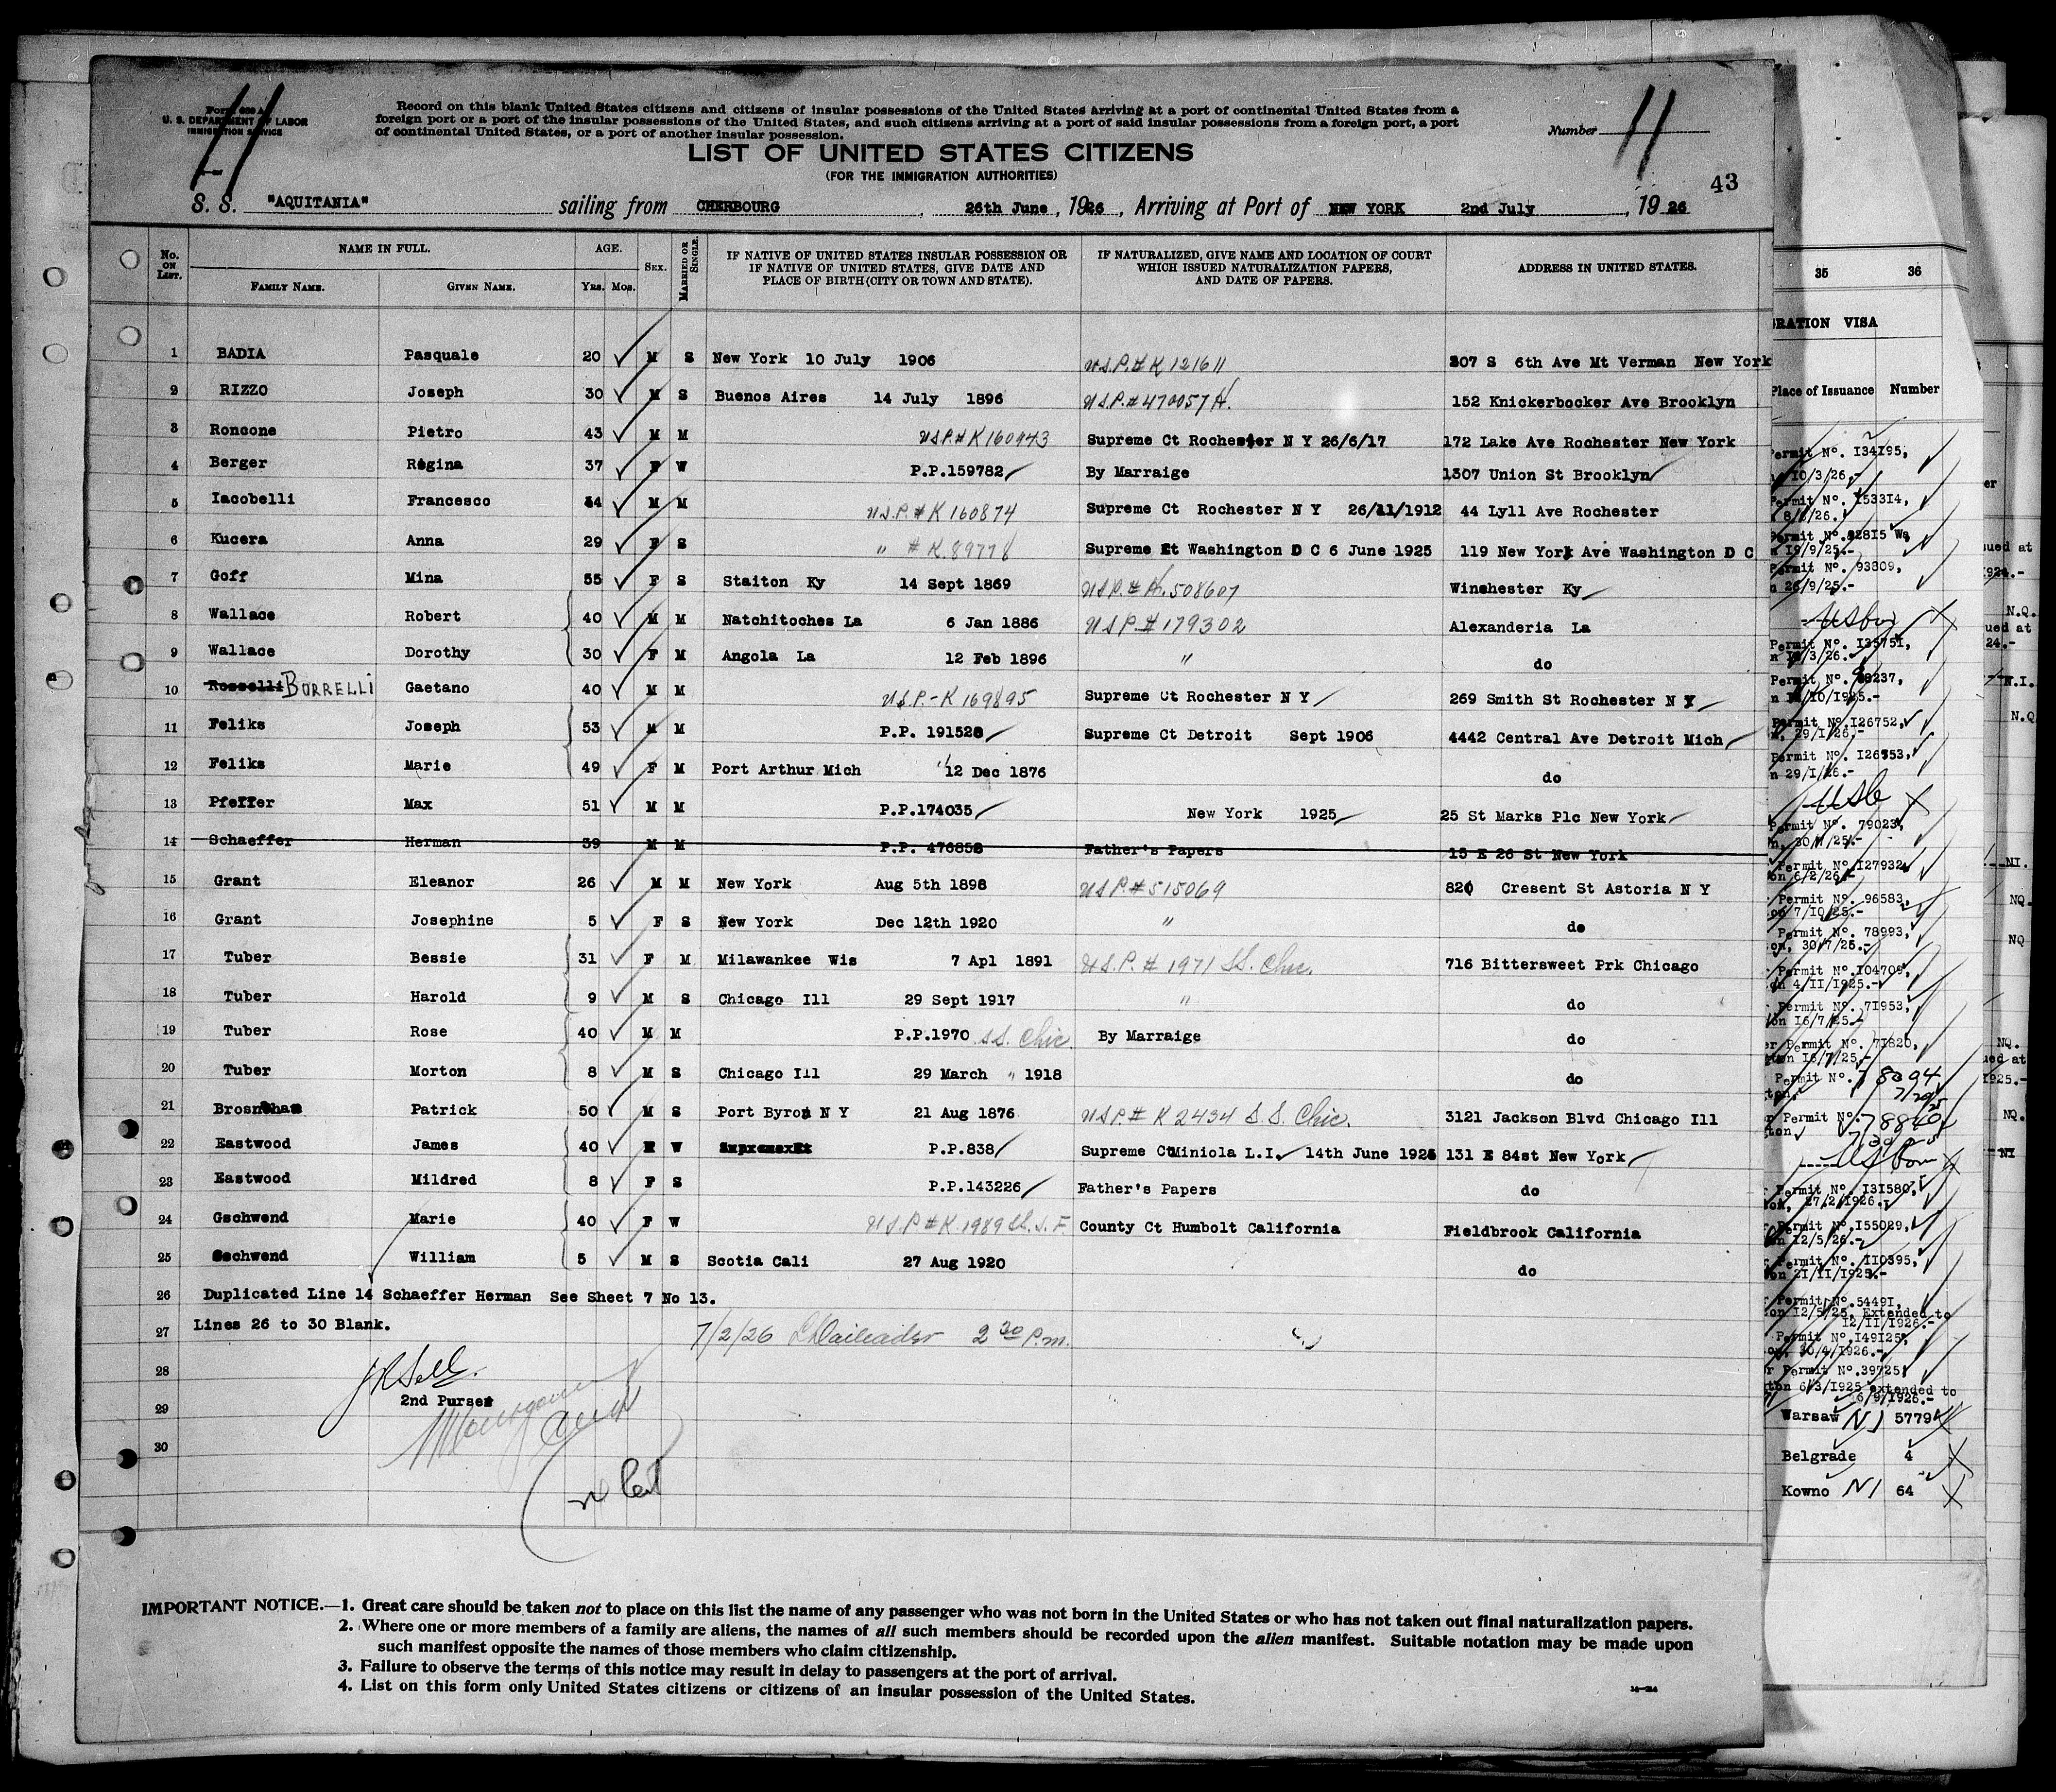 Form 630 A
U. S. DEPARTMENT OF LABOR
IMMIGRATION SERVICE
11
Record on this blank United States citizens and citizens of insular possessions of the United States Arriving at a port of continental United States from a
foreign port or a port of the insular possessions of the United States, and such citizens arriving at a port of said insular possessions from a foreign port, a port
of continental United States, or a port of another insular possession.
Number 11
LIST OF UNITED STATES CITIZENS
(FOR THE IMMIGRATION AUTHORITIES)
43
S. S. "AQUITANIA" sailing from CHERBOURG, 26th June, 1926, Arriving at Port of NEW YORK 2nd July, 1926
No. ON LIST. NAME IN FULL. FAMILY NAME. GIVEN NAME. AGE. Yrs. Mos. SEX. MARRIED OR SINGLE. IF NATIVE OF UNITED STATES INSULAR POSSESSION OR IF NATIVE OF UNITED STATES, GIVE DATE AND PLACE OF BIRTH (CITY OR TOWN AND STATE). IF NATURALIZED, GIVE NAME AND LOCATION OF COURT WHICH ISSUED NATURALIZATION PAPERS, AND DATE OF PAPERS. ADDRESS IN UNITED STATES.
1 BADIA Pasquale 20 M S New York 10 July 1906 U.S.P.# K 121611 307 S 6th Ave Mt Verman New York
2 RIZZO Joseph 30 M S Buenos Aires 14 July 1896 U.S.P.# 470057 A. 152 Knickerbocker Ave Brooklyn
3 Roncone Pietro 43 M M U.S.P.# K 160943 Supreme Ct Rochester N Y 26/6/17 172 Lake Ave Rochester New York
4 Berger Régina 37 F W P.P.159782 By Marraige 1307 Union St Brooklyn
5 Iacobelli Francesco 34 M M U.S.P.# K 160874 Supreme Ct Rochester N Y 26/11/1912 44 Lyll Ave Rochester
6 Kucera Anna 29 F S " # K 89778 Supreme Ct Washington D C 6 June 1925 119 New York Ave Washington D C
7 Goff Mina 55 F S Staiton Ky 14 Sept 1869 U.S.P.# 508607 Winehester Ky
8 Wallace Robert 40 M M Natchitoches La 6 Jan 1886 U.S.P.# 179302 Alexanderia La
9 Wallace Dorothy 30 F M Angola La 12 Feb 1896 " do
10 Rosselli BORRELLI Gaetano 40 M M U.S.P.- K 169895 Supreme Ct Rochester N Y 269 Smith St Rochester N Y
11 Feliks Joseph 53 M M P.P. 191528 Supreme Ct Detroit Sept 1906 4442 Central Ave Detroit Mich
12 Feliks Marie 49 F M Port Arthur Mich 12 Dec 1876 do
13 Pfeffer Max 51 M M P.P.174035 New York 1925 25 St Marks Plc New York
14 Schaeffer Herman 39 M M P.P. 476858 Father's Papers 15 E 26 St New York
15 Grant Eleanor 26 M M New York Aug 5th 1898 U.S.P.# 515069 820 Cresent St Astoria N Y
16 Grant Josephine 5 F S New York Dec 12th 1920 " do
17 Tuber Bessie 31 F M Milawankee Wis 7 Apl 1891 U.S.P. # 1971 SS. Chic. 716 Bittersweet Prk Chicago
18 Tuber Harold 9 M S Chicago Ill 29 Sept 1917 " do
19 Tuber Rose 40 M M P.P.1970 SS. Chic. By Marraige do
20 Tuber Morton 8 M S Chicago Ill 29 March 1918 do
21 Brosnahan Patrick 50 M S Port Byron N Y 21 Aug 1876 U.S.P.# K 2434 S.S. Chic. 3121 Jackson Blvd Chicago Ill
22 Eastwood James 40 M W P.P.838 Supreme Ct Miniola L.I. 14th June 1925 131 E 84st New York
23 Eastwood Mildred 8 F S P.P.143226 Father's Papers do
24 Gschwend Marie 40 F W U.S.P.# K. 1989 SS. S.F. County Ct Humbolt California Fieldbrook California
25 Gschwend William 5 M S Scotia Cali 27 Aug 1920 do
26 Duplicated Line 14 Schaeffer Herman See Sheet 7 No 13.
27 Lines 26 to 30 Blank.
7/2/26 2 30 P.m.
28
2nd Purser
29
30
IMPORTANT NOTICE.—1. Great care should be taken not to place on this list the name of any passenger who was not born in the United States or who has not taken out final naturalization papers.
2. Where one or more members of a family are aliens, the names of all such members should be recorded upon the alien manifest. Suitable notation may be made upon
such manifest opposite the names of those members who claim citizenship.
3. Failure to observe the terms of this notice may result in delay to passengers at the port of arrival.
4. List on this form only United States citizens or citizens of an insular possession of the United States.
35 36
GRATION VISA
Place of Issuance Number
Permit No. 134195,
10/3/26.-
Permit No. 153314,
Permit No. 93309,
26/9/25.-
Permit No. 135751,
Permit No. 126752,
29/1/26.-
Permit No. 126753,
29/1/26.-
Permit No. 79023,
Permit No. 127932
on 6/2/26.-
Permit No. 96583,
on 7/10/25.-
Permit No. 78993,
on, 30/7/25.-
on 4/11/1925.-
Permit No. 71953,
on 16/7/25.-
Permit No. 71820,
ton 16/7/25.-
Permit No. 78094
Permit No. 78840
Permit No. 131580,
27/2/1926.
Permit No. 155029,
on 12/5/26.-
Permit No. 110395,
on 21/11/1925.-
Permit No. 54491,
on 12/5/25, Extended to
12/11/1926.-
Permit No. 149125,
on, 30/4/1926.-
Permit No. 39725,
ton 6/3/1925 extended to
6/9/1926.-
Warsaw NI 5779
Belgrade 4
Kowno NI 64